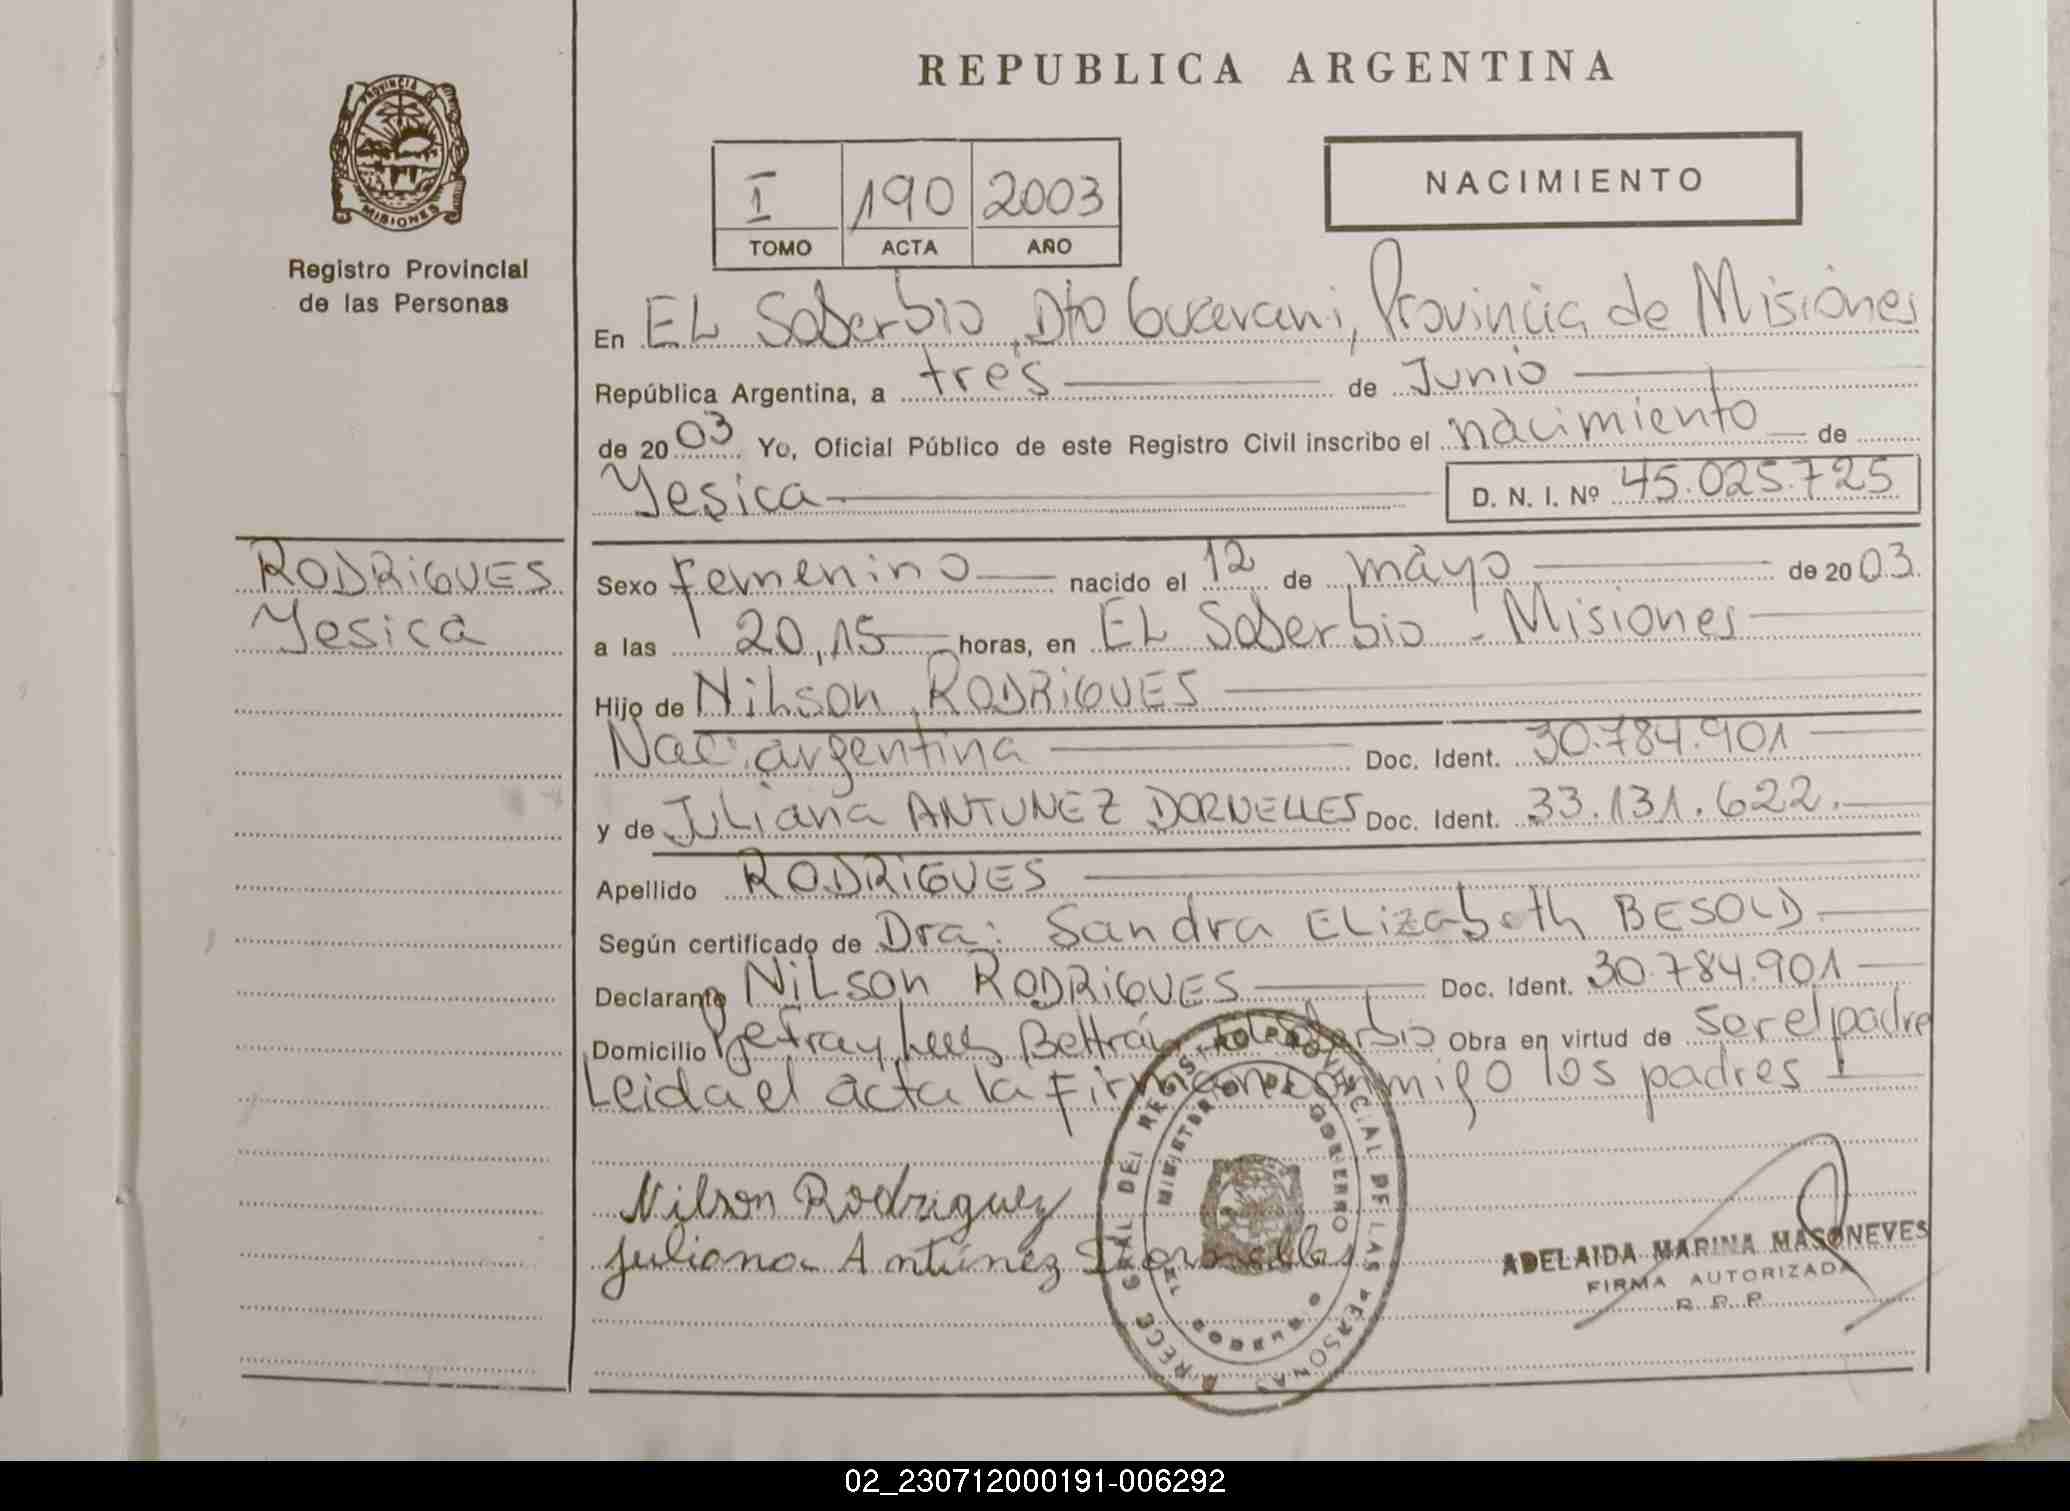 REPUBLICA ARGENTINA
PROVINCIA DE
MISIONES
Registro Provincial
de las Personas
I 190 2003
TOMO ACTA AÑO
NACIMIENTO
En EL Soberbio, Dto Guaraní, Provincia de Misiones
República Argentina, a tres de Junio
de 2003 Yo, Oficial Público de este Registro Civil inscribo el nacimiento de
Yesica D. N. I. Nº 45.025.725
RODRIGUES
Yesica
Sexo Femenino nacido el 12 de mayo de 2003.
a las 20,15 horas, en EL Soberbio - Misiones
Hijo de Nilson RODRIGUES
Nac: argentina Doc. Ident. 30.784.901
y de Juliana ANTUNEZ DORNELLES Doc. Ident. 33.131.622.
Apellido RODRIGUES
Según certificado de Dra: Sandra ELizabeth BESOLD
Declarante NiLson RODRIGUES Doc. Ident. 30.784.901
Domicilio Luis Beltrán Soberbio Obra en virtud de ser el padre
Leida el acta la Firman conmigo los padres
Nilson Rodriguez
Juliana Antúnez Dornelles
REGISTRO PROVINCIAL DE LAS PERSONAS
MINISTERIO DE GOBIERNO
ADELAIDA MARINA MASONEVES
FIRMA AUTORIZADA
R. P. P.
02_230712000191-006292